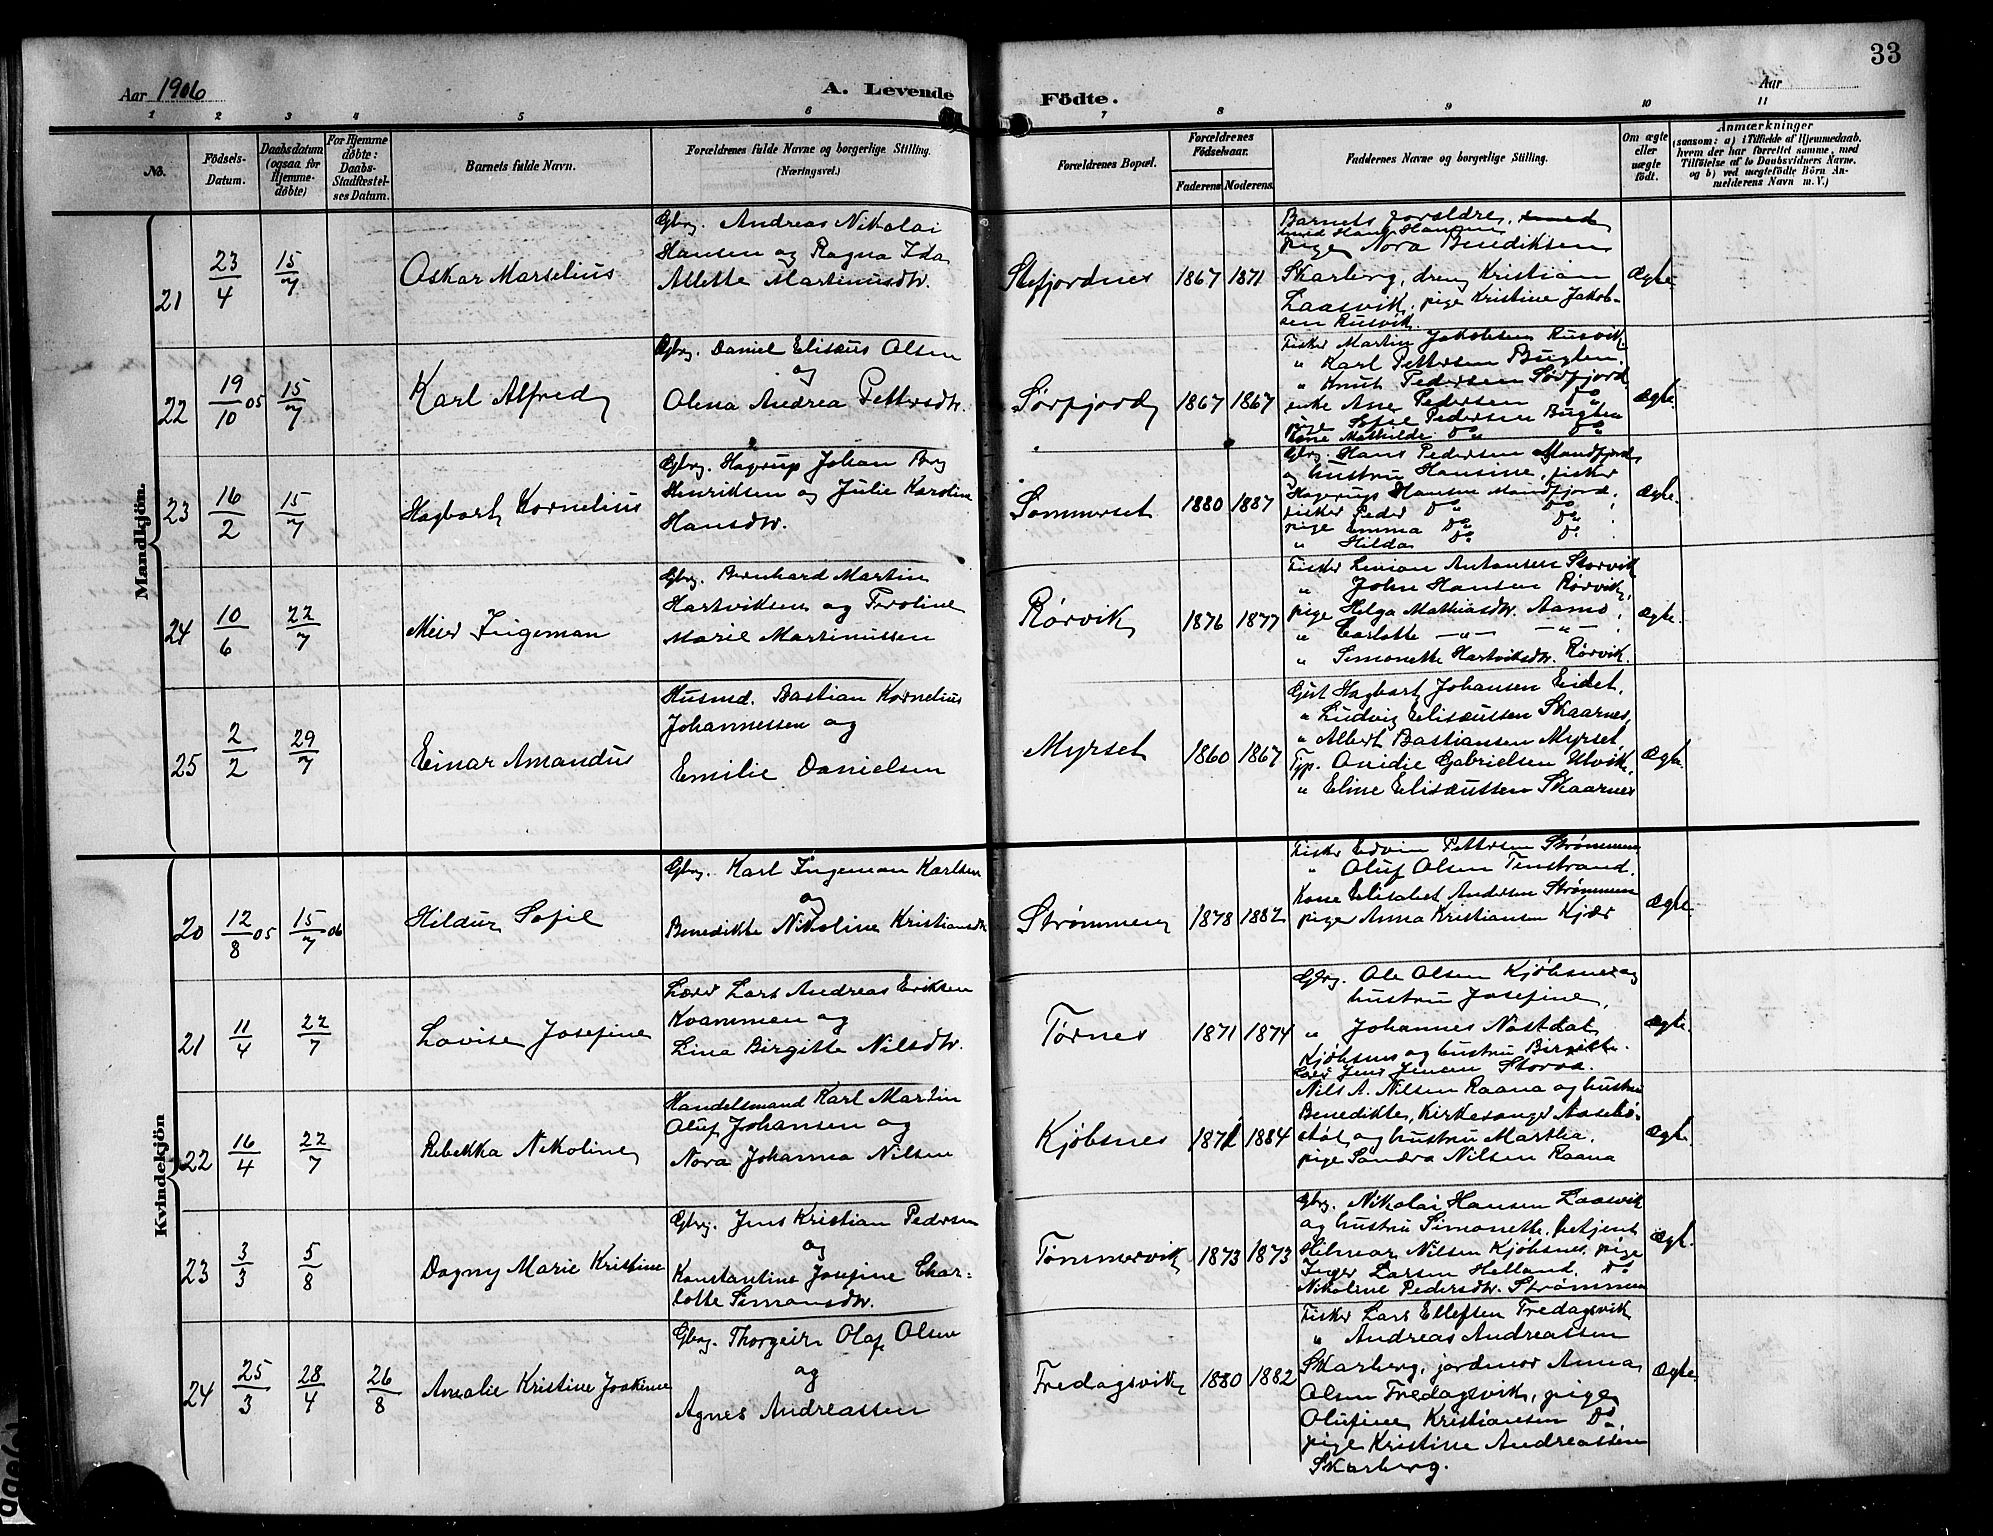 Aar 1906
A. Levende
Födte.
Aar
33
1 2 3 4 5 6 7 8 9 10 11
No.
Födsels-Datum.
Daabsdatum (ogsaa for Hjemme-döbte)
For Hjemme döbte: Daabs-Stadfæstelses Datum.
Barnets fulde Navn.
Forældrenes fulde Navne og borgerlige Stilling. (Næringsvei.)
Forældrenes Bopæl.
Forældrenes Födselsaar.
Faderens Moderens.
Faddernes Navne og borgerlige Stilling.
Om ægte eller uægte födt.
Anmærkninger
(saasom: a) i Tilfælde af Hjemmedaab, hvem der har forrettet samme, med Tilföielse af to Daabsvidners Navne, og b) ved uægtefödte Börn Anmelderens Navn m. V.)
Mandkjön.
21 23/4 15/7 Oskar Marselius
Gbrg. Andreas Nikolai
Hansen og Ragna Ida
Allette Martinusdtr.
Stefjordnes 1867 1871
Barnets foraldre, smed
smed Hans Hansen
pige Nora Benediksen
Skarberg, dreng Kristian
Laasvik, pige Kristine Jakob-
sen Rusvik.
Ægte.
22 19/10 05 15/7 Karl Alfred
Gbrg. Daniel Elisæus Olsen
og
Olena Andrea Pettersdtr.
Sørfjord 1867 1867
Fisker Martin Jakobsen Rusvik.
" Karl Pettersen Bugten.
" Knut Pedersen Sørfjord
enke Ane Pedersen Do
pige Sofie Pedersen Bugten
Kone Mathilde Do Do
Ægte.
23 16/2 15/7 Hagbart Kornelius
Gbrg. Hagrup Johan Berg
Henriksen og Julie Karoline
Hansdtr.
Sommerset 1880 1887
Gbrg. Hans Pedersen Mandfjord
og hustru Hansine, fisker
Hagerups Hansen Mandfjord,
fisker Peder Do Do
pige Emma Do Do
" Hilda Do Do
Ægte.
24 10/6 22/7 Meier Ingeman
Gbrg. Bernhard Martin
Hartviksen og Teroline
Marie Martinussen
Rørvik 1876 1877
Fisker Simon Antonsen Storvik
" John Hansen Rørvik,
pige Helga Mathiasdtr. Aamo,
" Carlotte —"— —"—
" Simonette Hartviksdtr. Rørvik.
Ægte.
25 2/2 29/7 Einar Amandus
Husmd. Bastian Kornelius
Johannessen og
Emilie Danielsen
Myrset 1860 1867
Gut Hagbart Johansen Eidet,
" Ludvig Elisæussen Skaarnes,
" Albert Bastiansen Myrset,
Typ. Ovidie Gabrielsen Ulvik,
" Eline Elisæussen Skaarnes
Ægte.
Kvindekjön
20 12/8 05 15/7 06 Hildur Sofie
Gbrg. Karl Ingeman Karlsen
og
Benedikte Nikoline Kristiansdtr
Strømmen 1878 1882
Fisker Edvin Pettersen Strømmen
" Oluf Olsen Tinstrand.
Kone Elisabet Andersen Strømmen
pige Anna Kristiansen Kjær
Ægte.
21 11/4 22/7 Lovise Josefine
Lærer Lars Andreas Eriksen
Kvammen og
Lina Birgitte Nilsdtr.
Tørnes 1871 1874
Gbrg. Ole Olsen Kjøbsnes og
hustru Josefine,
" Johannes Nostdal
Kjøbsnes og hustru Birgitte.
Lærer Jens Jensen Storvå.
Ægte.
22 16/4 22/7 Rebekka Nikoline
Handelsmand Karl Martin
Oluf Johansen og
Nora Johanna Nilsen
Kjøbsnes 1871 1884
Nils A. Nilsen Raana og hustru
Benedikte, Kirkesanger Aasebø-
støl og hustru Martha.
pige Sandra Nilsen Raana
Ægte.
23 3/3 5/8 Dagny Marie Kristine
Gbrg. Jens Kristian Pedersen
og
Konstantine Josefine Char-
lotte Simonsdtr.
Tømmervik 1873 1873
Gbrg. Nikolai Hansen Laasvik
og hustru Simonette, betjent
Hilmar Nilsen Kjøbsnes, pige
Inger Larsen Helland. Do
Nikoline Pedersdtr. Strømmen
Ægte.
24 25/3 28/4 26/8 Amalie Kristine Joakime
Gbrg. Thorgeir Olaf Olsen
og
Agnes Andreassen
Fredagsvik 1880 1882
Fisker Lars Ellefsen Fredagsvik
" Andreas Andreassen
Skarberg, jordmor Anna
Olsen Fredagsvik, pige
Olufine Kristiansen Do,
pige Kristine Andreassen
Skarberg.
Ægte.